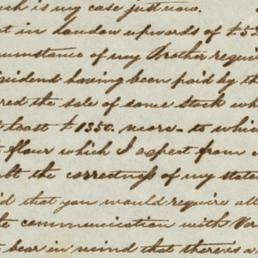 ch is my case just now.
t in London upwards of £52
cumstance of my Brother requi
sident having been paid by th
red the sale of some stock wh
t least £1350. more - to which
t flour which I expect from
bt the correctness of my state
id that you would require all
te communication with Ver
t bear in mind that there is a